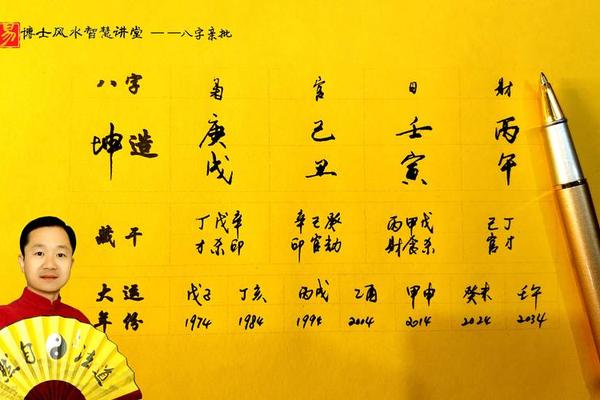 易 博士风水智慧讲堂 ——八字亲批
八字 枭 官 日 財
坤造 庚 己 壬 丙
戌 丑 寅 午
藏干 丁戊辛 辛己癸 丙甲戊 己丁
才杀印 印官劫 財食杀 官才
大运 戊子 丁亥 丙戌 乙酉 甲申 癸未 壬午
年份 1974 1984 1994 2004 2014 2024 2034
然自 法道